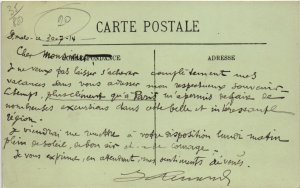 20
CARTE POSTALE
20-7-14
Cher Monsieur
CORRESPONDANCE
ADRESSE
Je ne veux pas laisser s'achever complètement mes
vacances sans vous adresser mon respectueux souvenir
Le temps, plus clément qu'à Paris m'a permis de faire de
nombreuses excursions dans cette belle et intéressante
région.
Je viendrai me mettre à votre disposition lundi matin
plein de soleil, de bon air et de courage.
Je vous exprime, en attendant, mes sentiments dévoués.